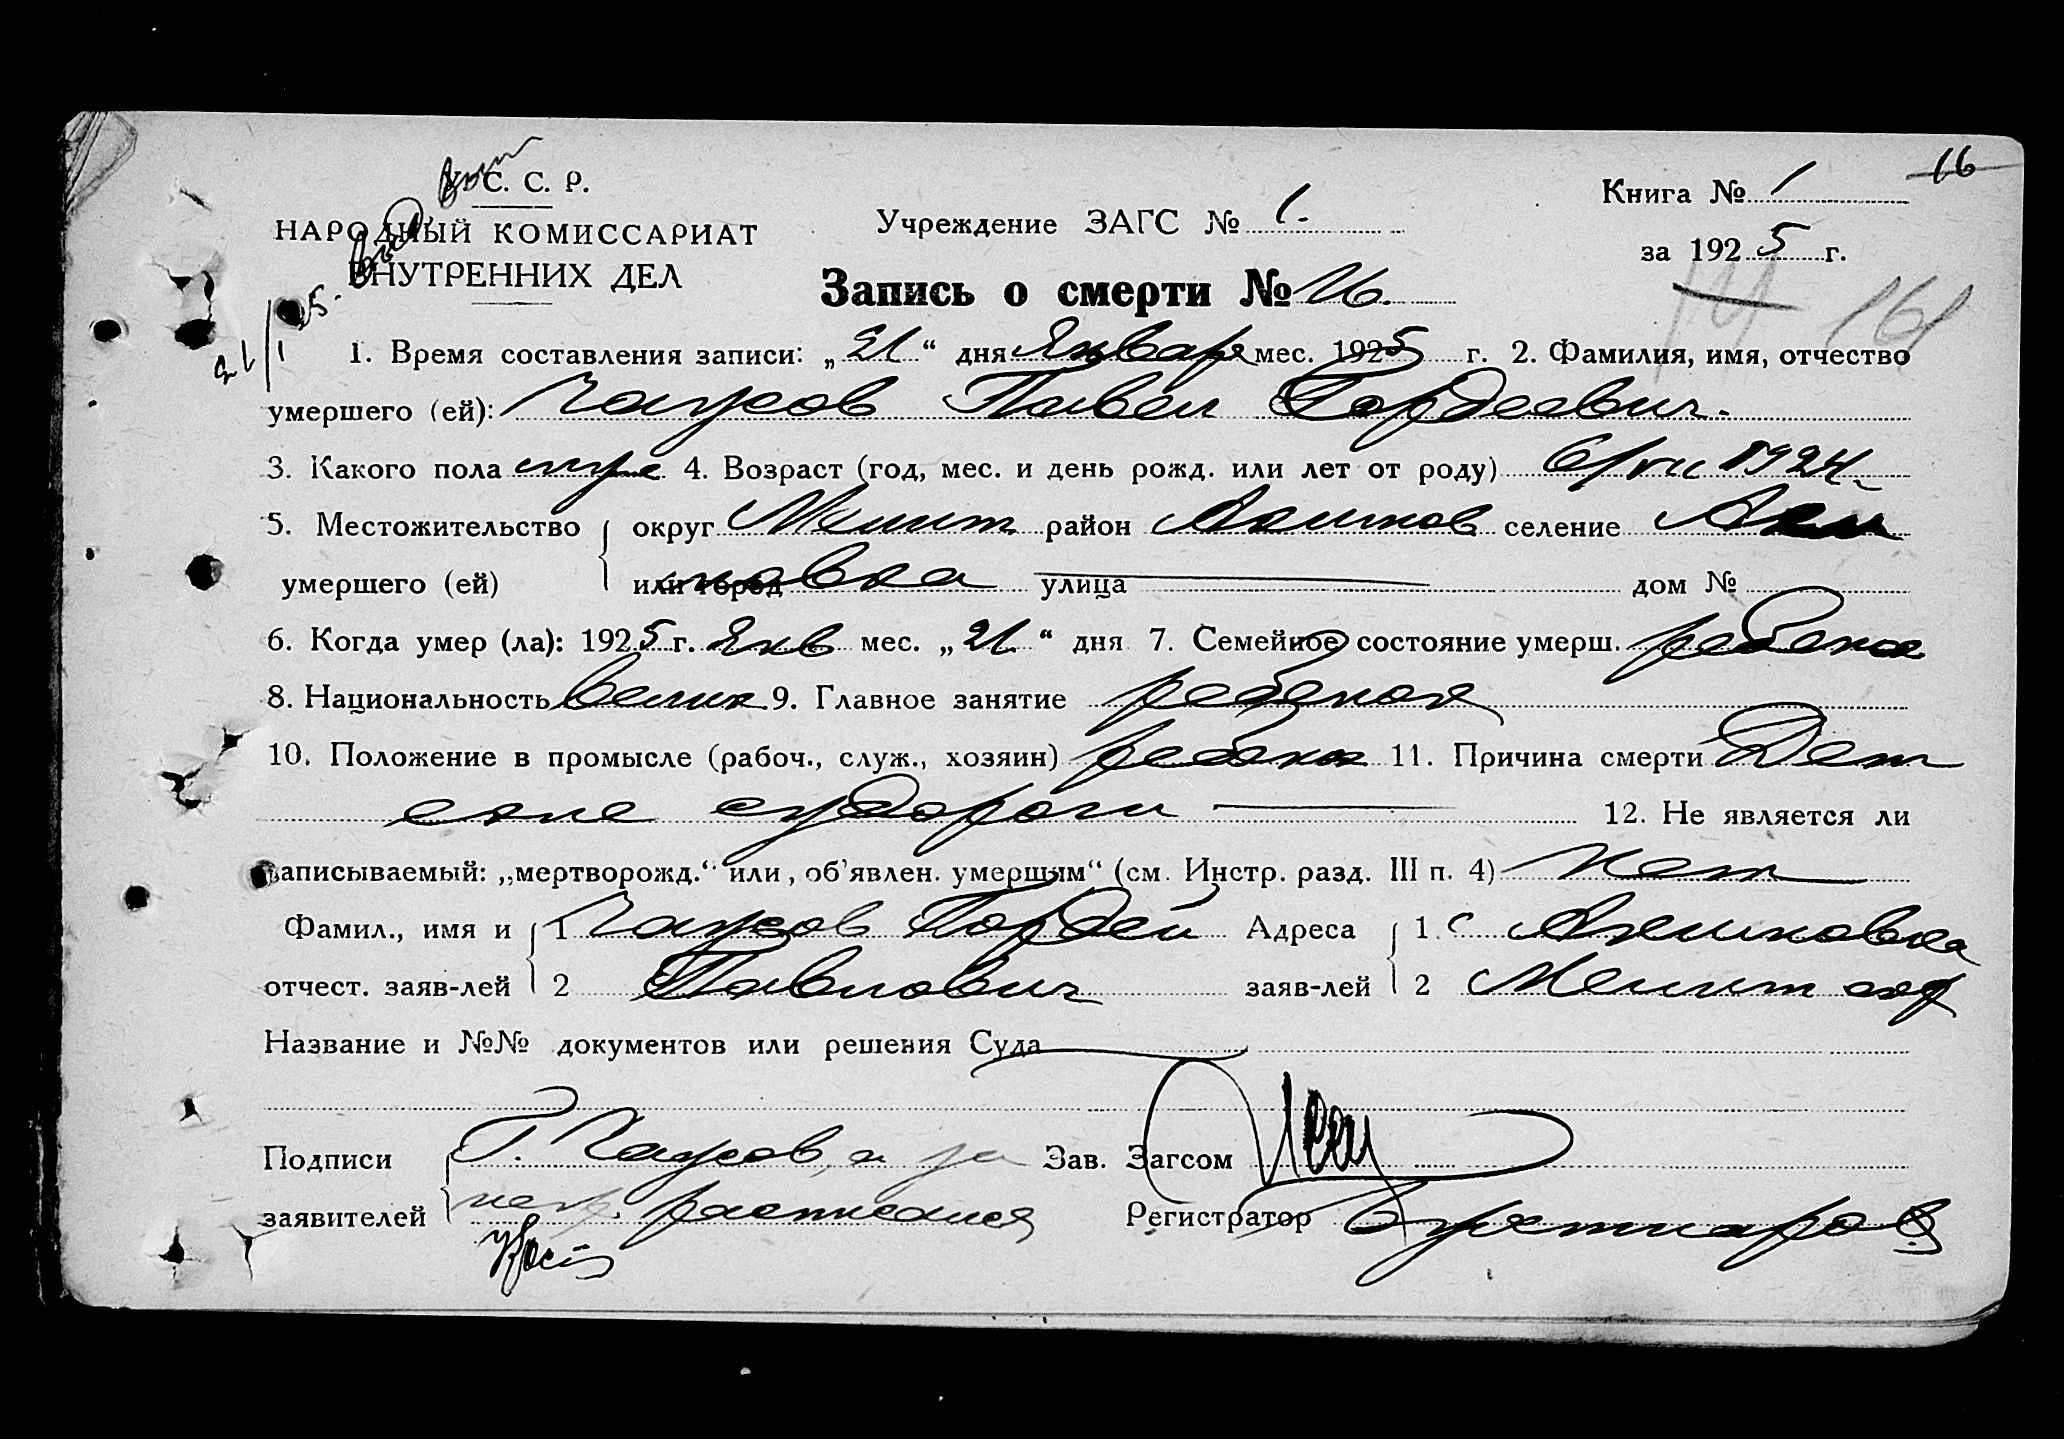 16
У. С. С. Р.
НАРОДНЫЙ КОМИССАРИАТ
ВНУТРЕННИХ ДЕЛ
Учреждение ЗАГС № 1.
Книга № 1
за 1925 г.
Запись о смерти № 16.
161
21/1 25.
1. Время составления записи: „21“ дня Января мес. 1925 г. 2. Фамилия, имя, отчество
умершего (ей): Чаусов Павел Гордеевич.
3. Какого пола муж 4. Возраст (год, мес. и день рожд. или лет от роду) 6/VII 1924.
5. Местожительство округ Мелит. район Акимов селение Аки
умершего (ей) или город мовка улица дом №
6. Когда умер (ла): 1925 г. Янв мес. „21“ дня 7. Семейное состояние умерш. ребенок
8. Национальность велик 9. Главное занятие ребенок
10. Положение в промысле (рабоч., служ., хозяин) ребенок 11. Причина смерти Дет
ские судороги 12. Не является ли
записываемый: „мертворожд.“ или „об'явлен. умершым“ (см. Инстр. разд. III п. 4) Нет
Фамил., имя и 1 Чаусов Гордей Адреса 1 с Акимовка
отчест. заяв-лей 2 Павлович заяв-лей 2 Мелит окр
Название и №№ документов или решения Суда
Подписи Г. Чаусов, а за Зав. Загсом
заявителей негр. расписался Регистратор